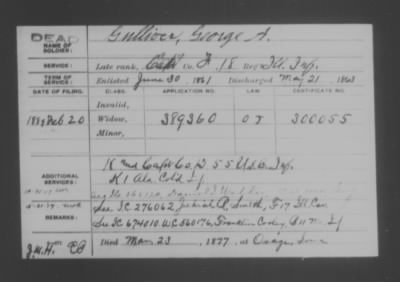 DEAD
NAME OF SOLDIER: Gulliver, George A.
SERVICE: Late rank, Capt Co. F, 18 Reg't Ill. Inf.
TERM OF SERVICE: Enlisted June 30, 1861 Discharged May 21, 1863
DATE OF FILING. CLASS. APPLICATION NO. LAW. CERTIFICATE NO.
Invalid,
1889 Feb 20 Widow, 389360 O J 300055
Minor,
ADDITIONAL SERVICES: K and Capt Co. D 55 U.S.C. Inf.
K 1 Ala Cold If
See IC 276062, A. Smith, F 17 Ill Cav
REMARKS: See IC 674010 WC 560176, Franklin
Died Mar. 23, 1877, at Osage, Iowa